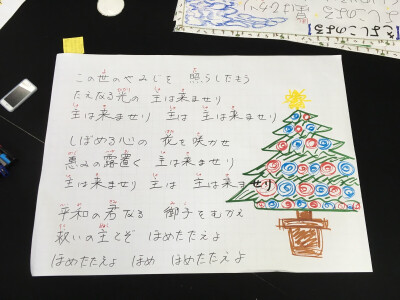 この世のやみじを 照らしたもう
たえなる光の 主は来ませり
主は来ませり 主は 主は来ませり
しぼめる心の 花を咲かせ
恵みの露置く 主は来ませり
主は来ませり 主は 主は来ませり
平和の君なる 御子をむかえ
救いの主とぞ ほめたたえよ
ほめたたえよ ほめ ほめたたえよ